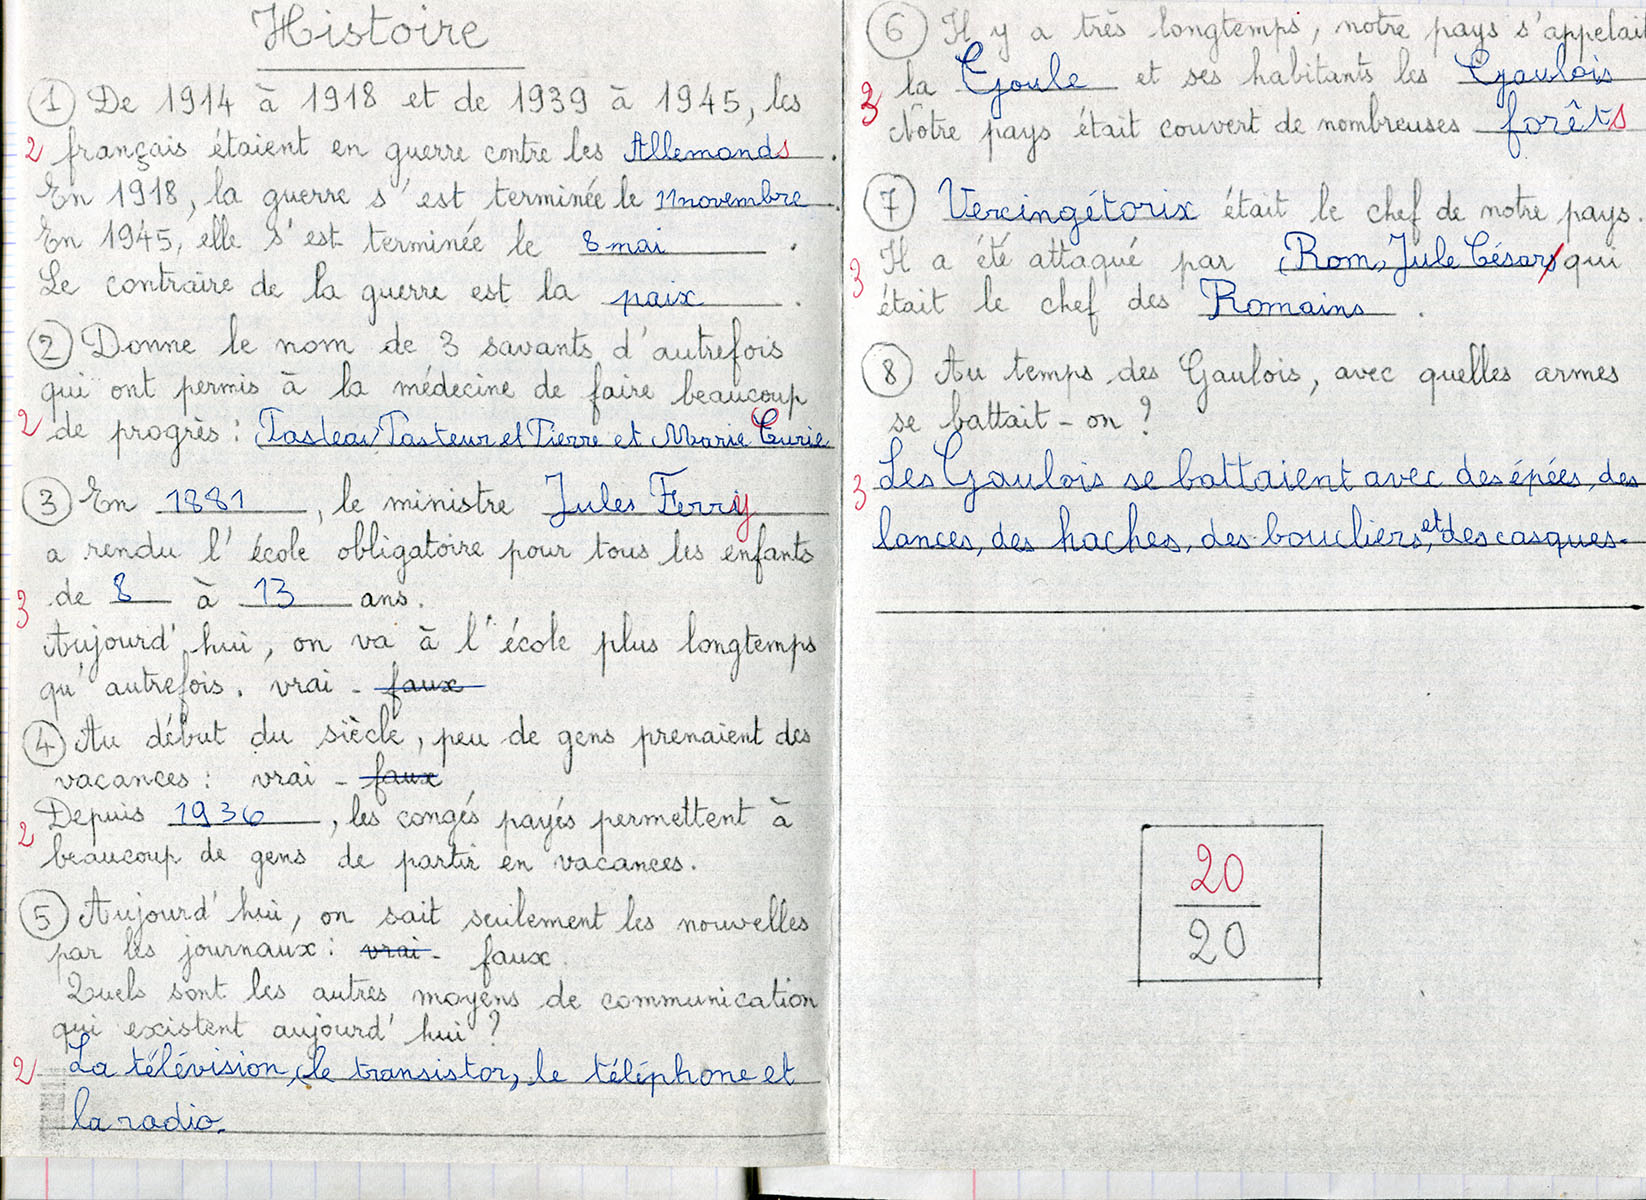 Histoire
① De 1914 à 1918 et de 1939 à 1945, les
2 français étaient en guerre contre les Allemands.
En 1918, la guerre s'est terminée le 11 novembre.
En 1945, elle s'est terminée le 8 mai.
Le contraire de la guerre est la paix.
② Donne le nom de 3 savants d'autrefois
qui ont permis à la médecine de faire beaucoup
2 de progrès : (Pasteau) Pasteur et Pierre et Marie Curie
③ En 1881, le ministre Jules Ferry
a rendu l'école obligatoire pour tous les enfants
3 de 8 à 13 ans.
Aujourd'hui, on va à l'école plus longtemps
qu'autrefois. vrai - faux
④ Au début du siècle, peu de gens prenaient des
vacances : vrai - faux
2 Depuis 1936, les congés payés permettent à
beaucoup de gens de partir en vacances.
⑤ Aujourd'hui, on sait seulement les nouvelles
par les journaux : vrai - faux.
Quels sont les autres moyens de communication
qui existent aujourd'hui ?
2 La télévision, le transistor, le téléphone et
la radio.
⑥ Il y a très longtemps, notre pays s'appelait
3 la Goule et ses habitants les Gaulois
Notre pays était couvert de nombreuses forêts
⑦ Vercingétorix était le chef de notre pays.
3 Il a été attaqué par (Rom) Jule César qui
était le chef des Romains.
⑧ Au temps des Gaulois, avec quelles armes
se battait-on ?
3 Les Gaulois se battaient avec des épées, des
lances, des haches, des boucliers, et des casques.
20
20